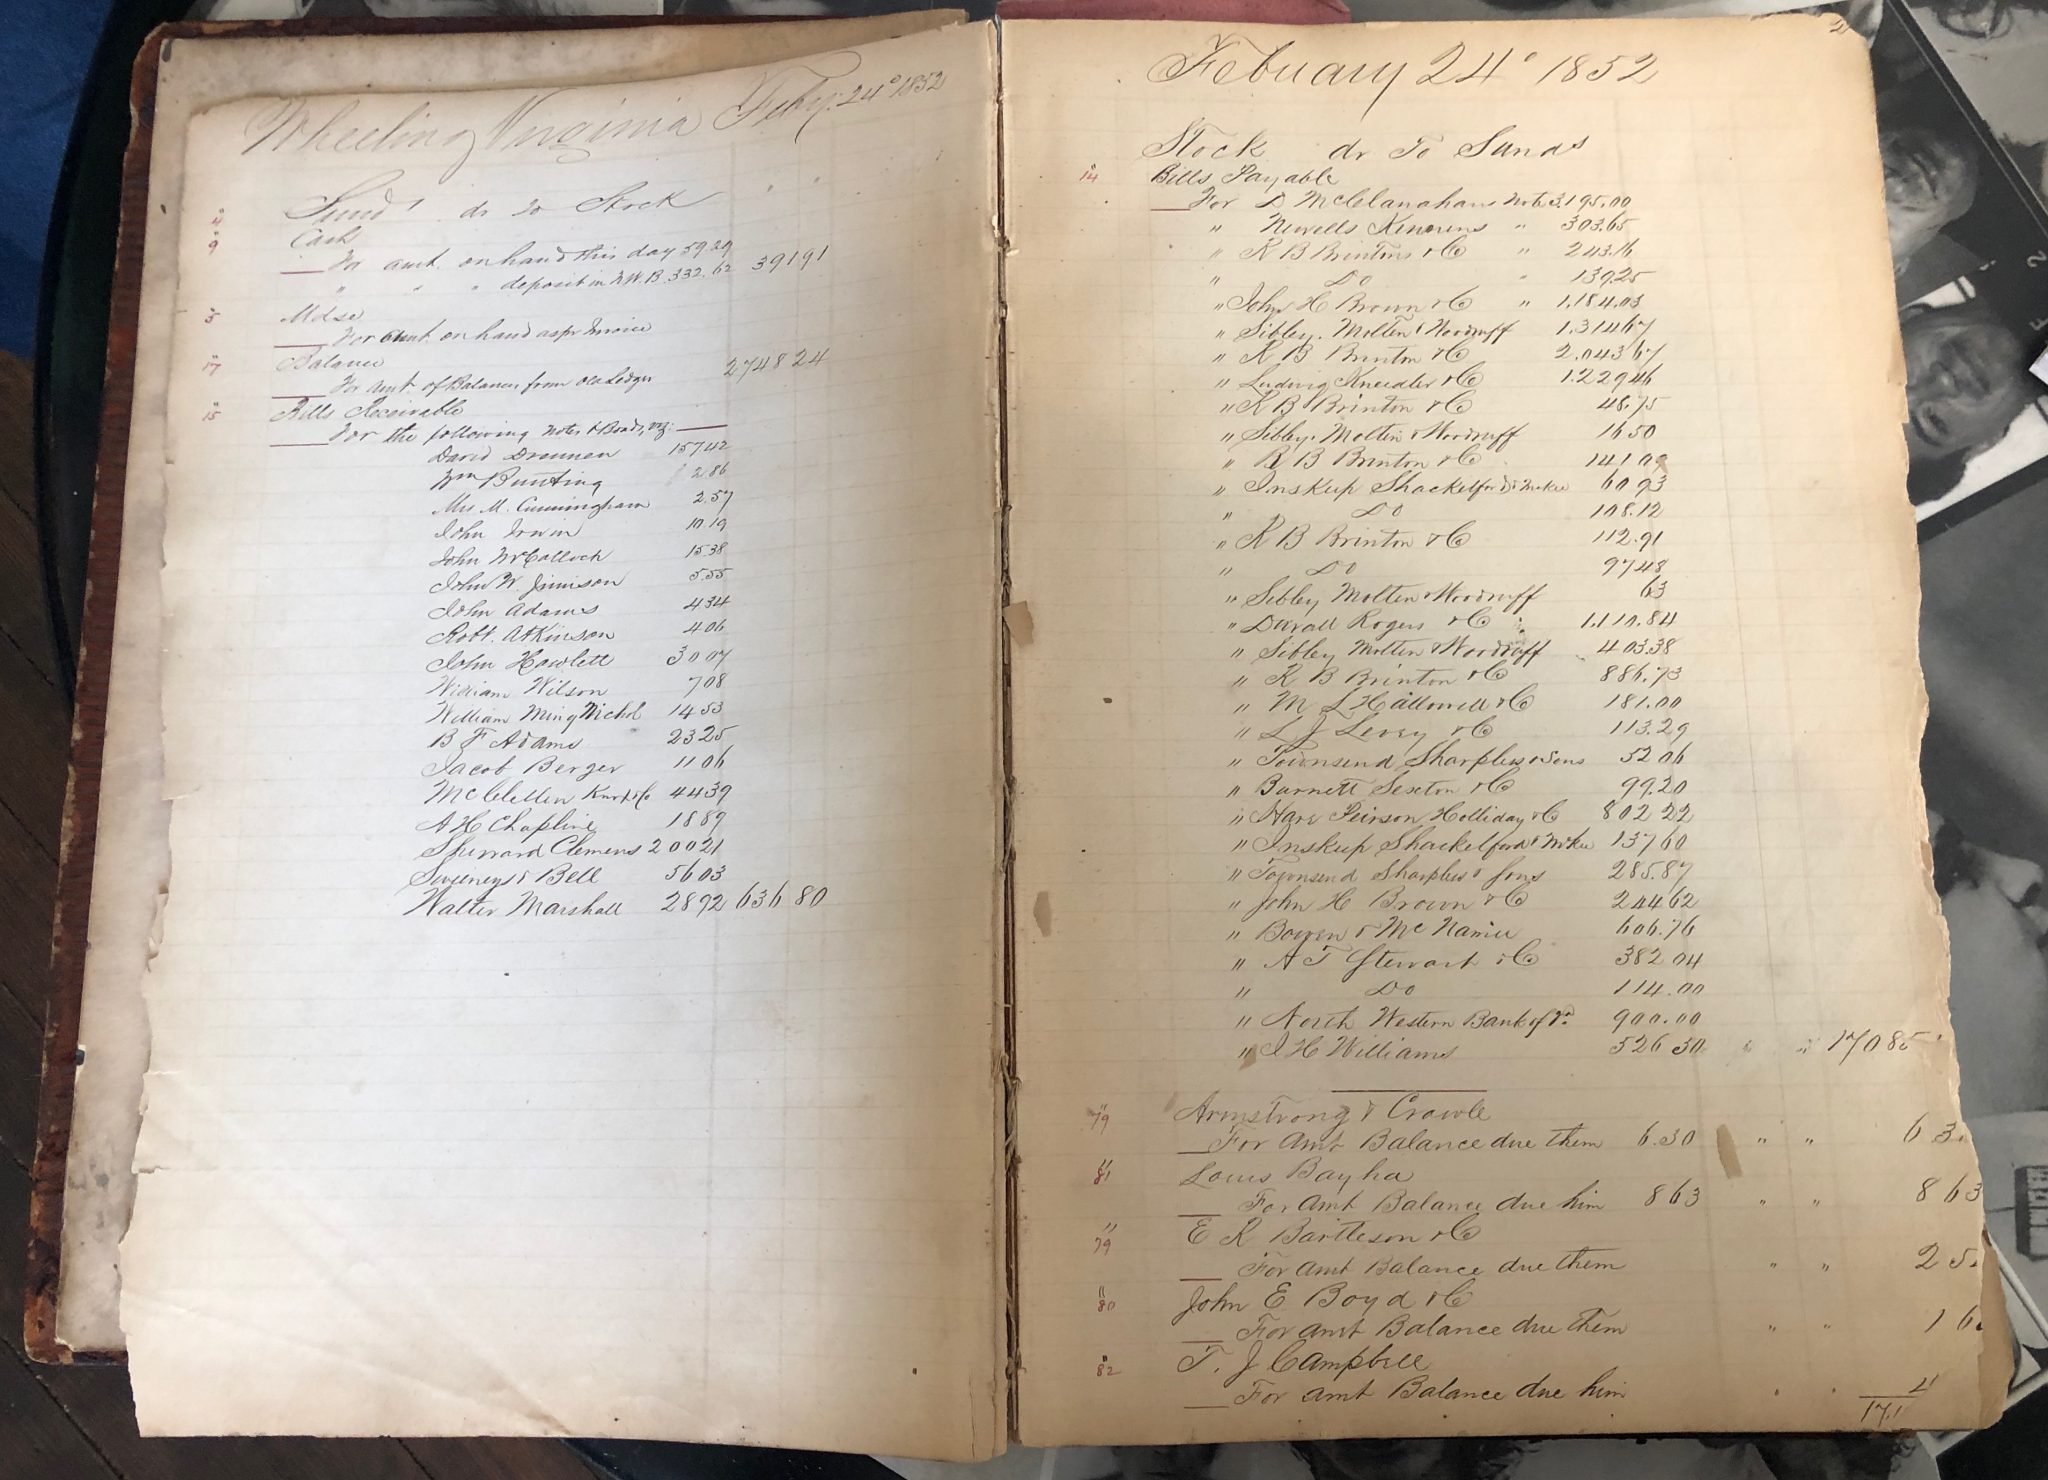 Wheeling Virginia Feby. 24° 1852
Sund^s dr to Stock
4
Cash
9
For amt. on hand this day 59.29
" " " deposit in N.W.B. 332.62 391 91
5 Mdse
For amt on hand as pr Invoice
17 Balance
For Amt. of Balances from old Ledger 2748 24
15 Bills Receivable
For the following Notes & Bonds, viz:
David Drennen 157 42
Wm Bunting 2 86
Mrs M. Cunningham 2.57
John Irwin 10 19
John McCulloch 15 38
John W. Jimison 5.55
John Adams 4 34
Robt. Atkinson 4 06
John Howlett 30 07
William Wilson 7 08
William Ming Nichol 14 53
B F Adams 23 25
Jacob Berger 11 06
McClellen Knox & Co 44 39
A H Chapline 18 87
Sherrard Clemens 200 21
Sweeneys & Bell 56 03
Walter Marshall 28 92 636 80
2
February 24° 1852
Stock dr To Sund^s
14 Bills Payable
For D McClanahans Note 3,195.00
" Newells Kinsens " 303.65
" R B Brintons & C " 243.16
" Do " 139.25
" John H Brown & C " 1,184.03
" Sibley. Molten & Woodruff 1,314 67
" R B Brinton & C 2,043 67
" Ludwig Kneedler & C 1,229 46
" R B Brinton & C 48.75
" Sibley. Molten & Woodruff 16 50
" R B Brinton & C 141 09
" Inskeep Shackelford & McKee 60 93
" Do 108.12
" R B Brinton & C 112.91
" Do 97 48
" Sibley Molten & Woodruff 63
" Duvall Rogers & C 1,110.84
" Sibley Molten & Woodruff 403.38
" R B Brinton & C 886.73
" M L Hallowell & C 181.00
" L J Levey & C 113.29
" Townsend Sharpless & Sons 52 06
" Burnett Sexton & C 99.20
" Hare Peirson Holliday & C 802 22
" Inskeep Shackelford & McKee 137 60
" Townsend Sharpless & Sons 285.87
" John H Brown & C 244 62
" Bowen & McNamee 606.76
" A T Stewart & C 382 04
" Do 114.00
" North Western Bank of Va. 900.00
" J H Williams 526 30 " " 17085
79 Armstrong & Crawle
For Amt Balance due them 6.30 " " 6 3
81 Louis Bayha
For Amt Balance due him 8 63 " " 8 63
79 E R Bartleson & C
For Amt Balance due them " " 2 5
80 John E Boyd & C
For Amt Balance due them " " 1 6
82 T. J Campbell
For Amt Balance due him " " 4
17,1